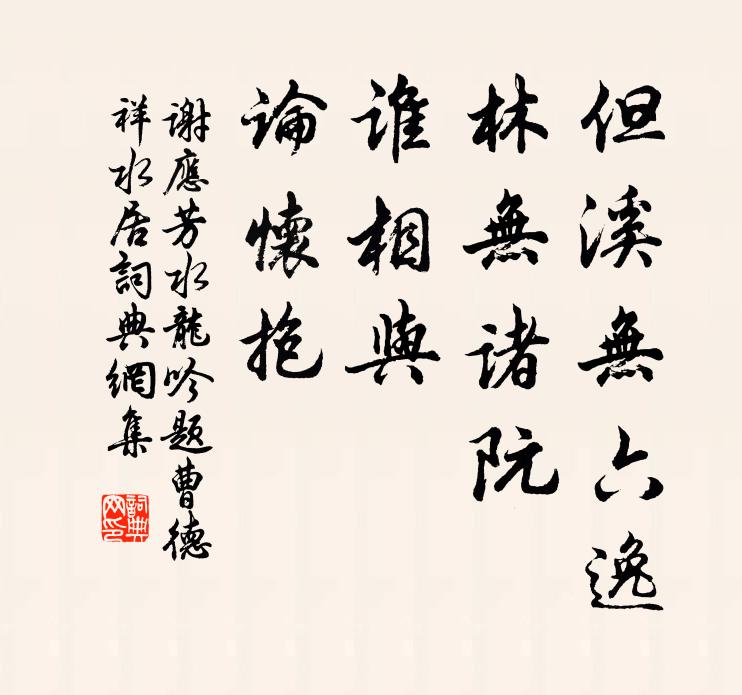 但溪無六逸
林無諸阮
誰相與
論懷抱
謝應芳水龍吟題曹德
祥水居詞典網集
詞典
网